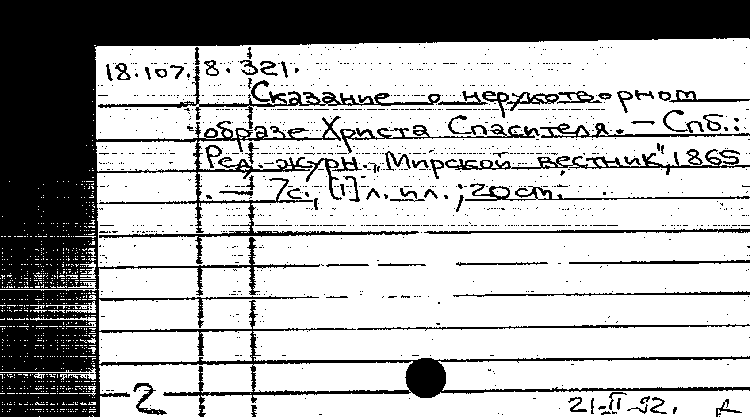 18.107.8.321.
Сказание о нерукотворном
образе Христа Спасителя. — Спб.:
Ред. журн. „Мирской вестник", 1865
. — 7с., [1] л. ил.; 20 см.
2
21-II-92.